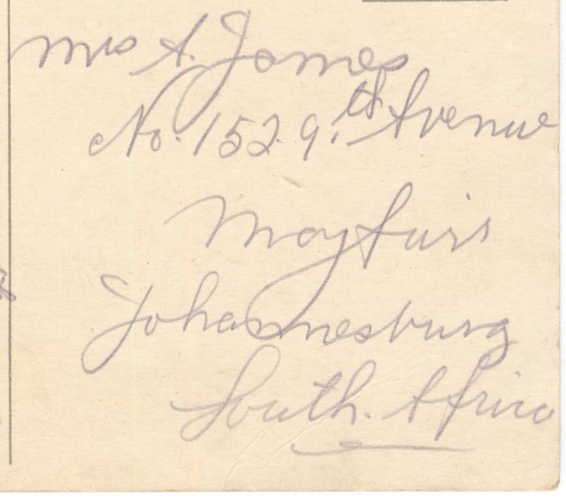 Mrs A. James
No. 152 9th Avenue
Mayfair
Johannesburg
South. Africa